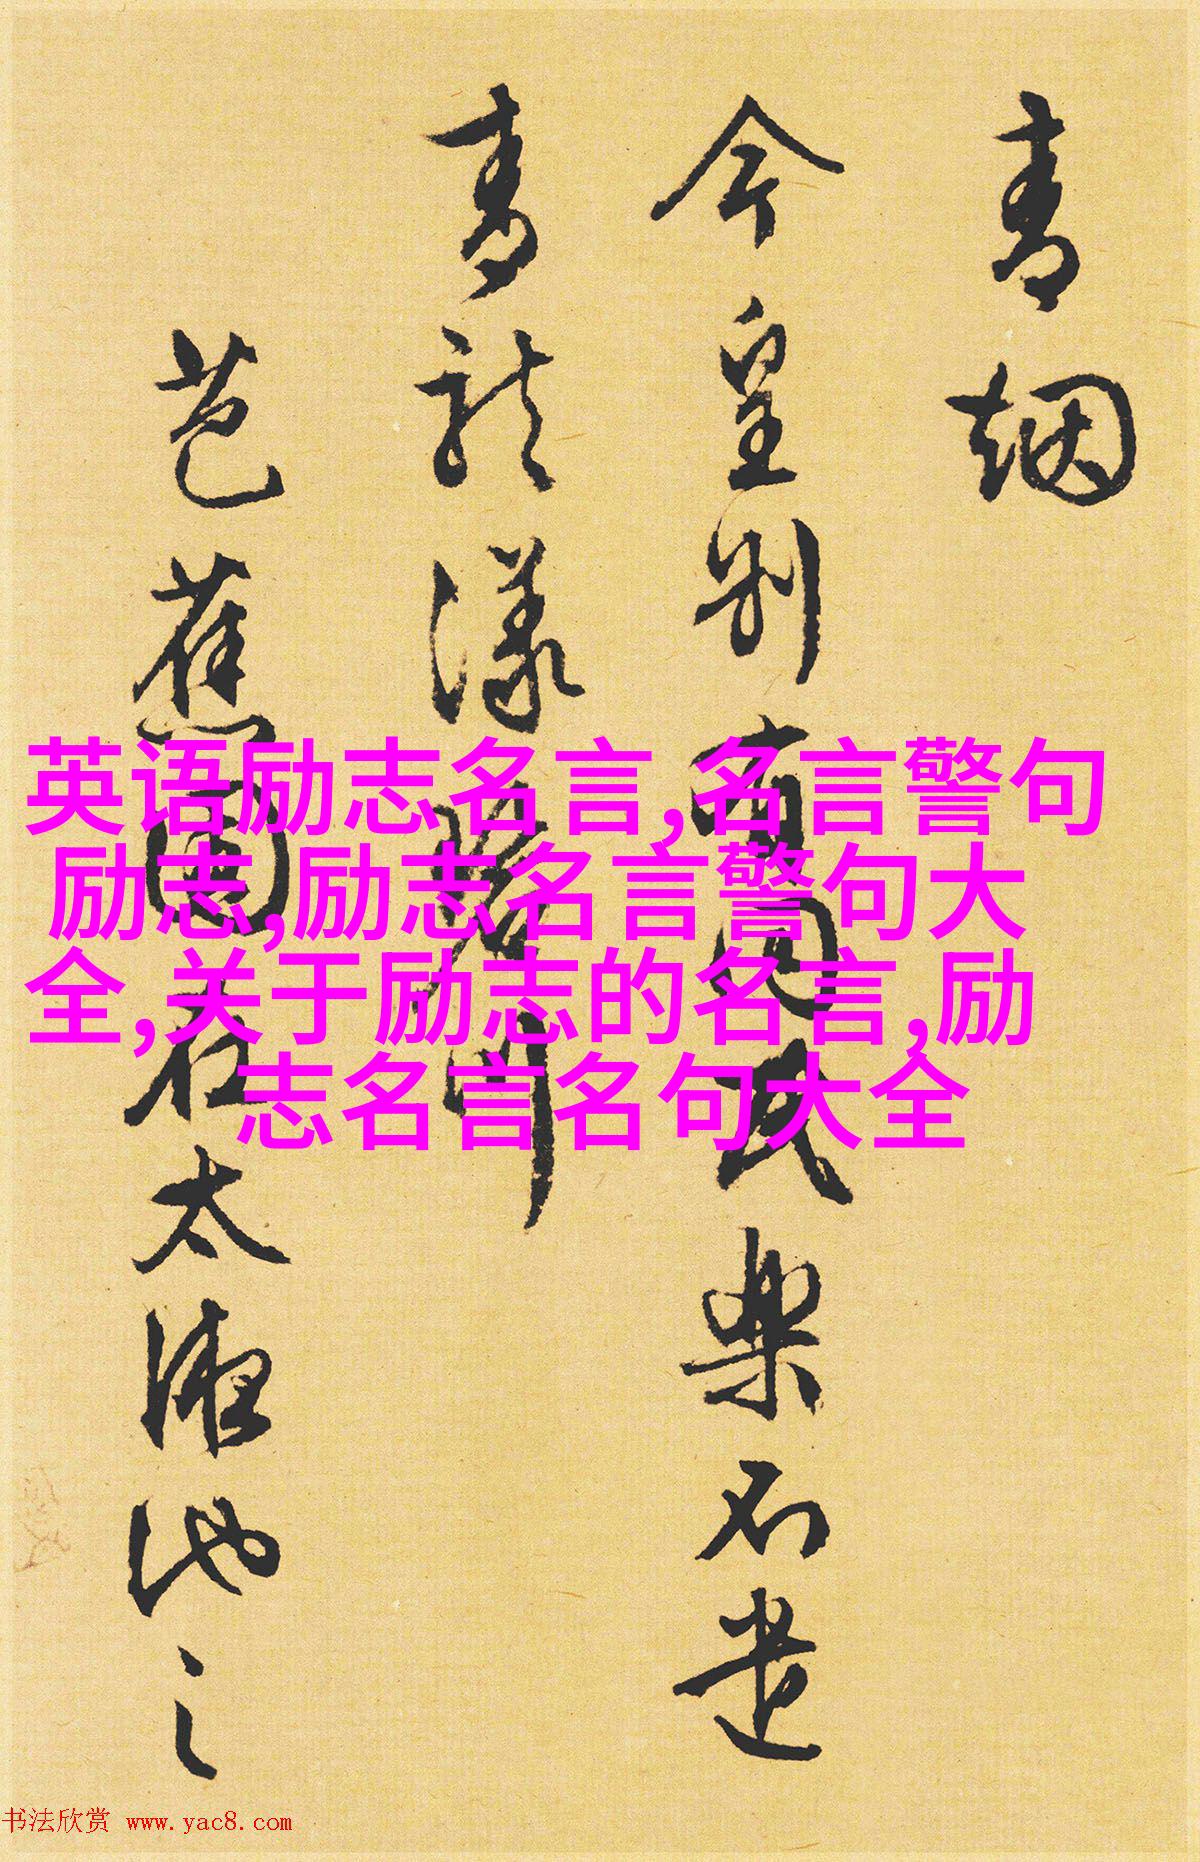 青烟
今皇别有同民樂不遣
青龍漾川
芭蕉園在太液池之
英语励志名言,名言警句
励志,励志名言警句大
全,关于励志的名言,励
志名言名句大全
书法欣赏 www.yac8.com